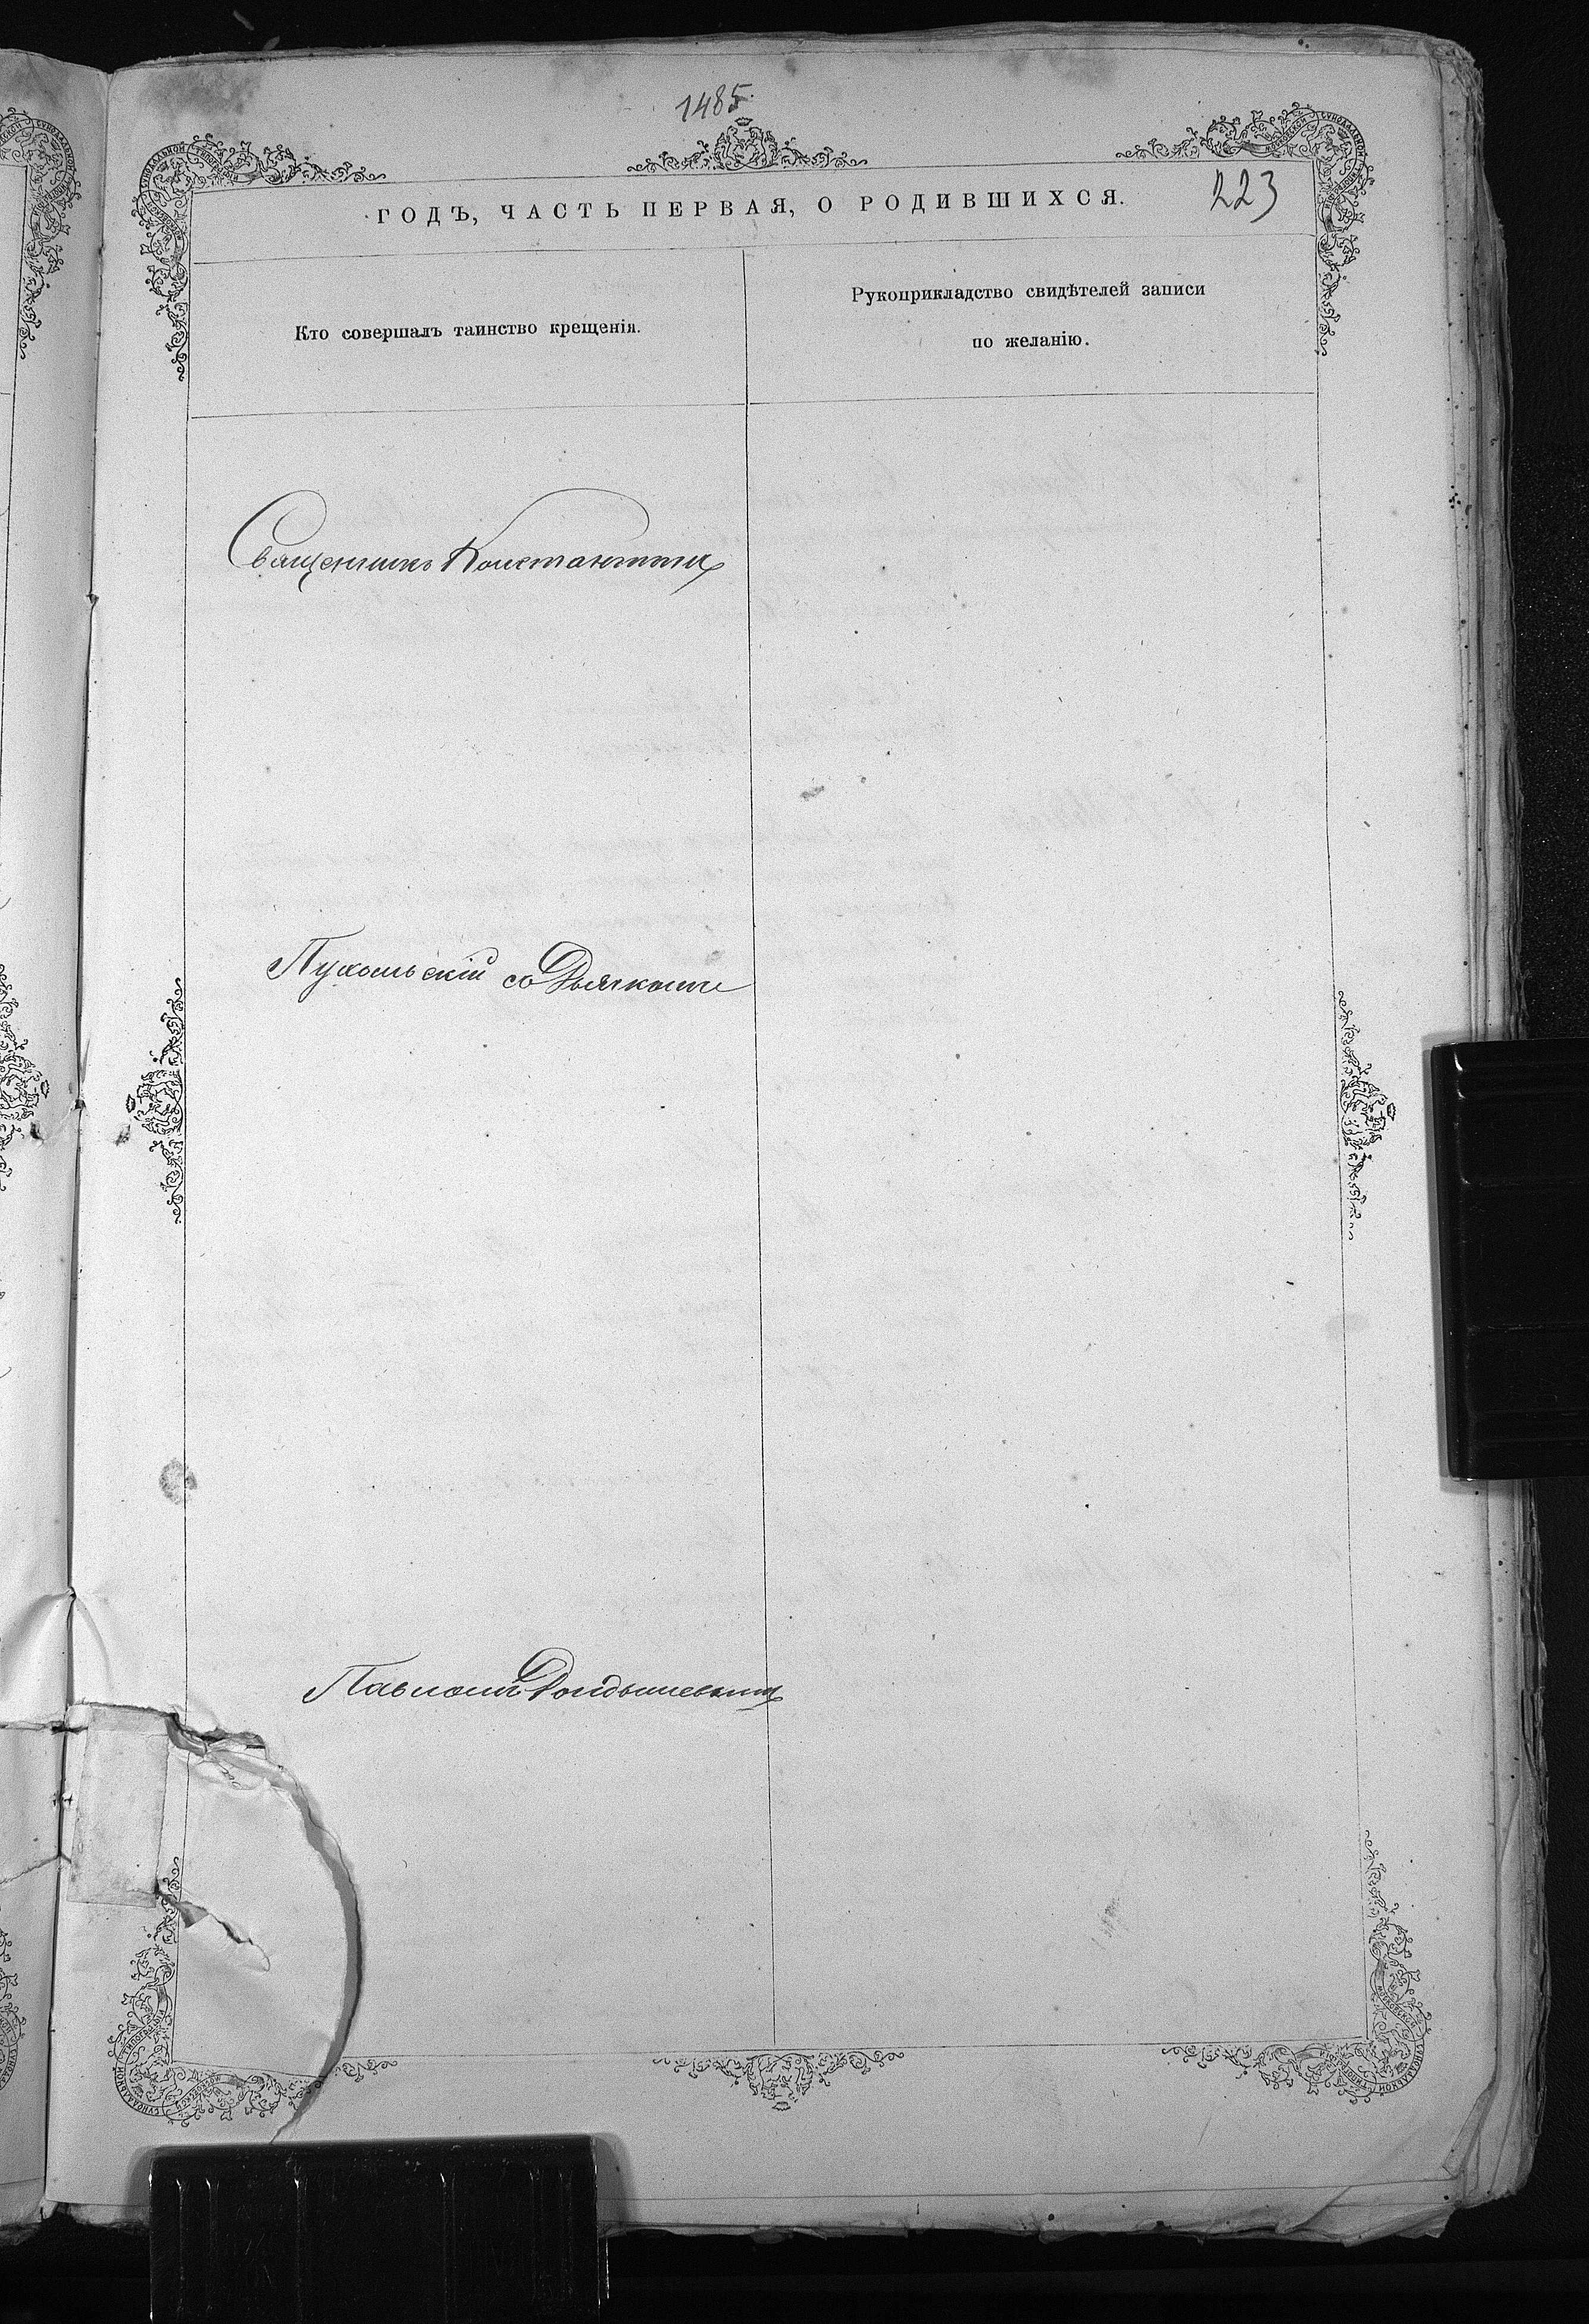 1485.
223
ГОДЪ, ЧАСТЬ ПЕРВАЯ, О РОДИВШИХСЯ.
Кто совершалъ таинство крещенія.
Рукоприкладство свидѣтелей записи
по желанію.
Священникъ Константинъ
со Дьячкомъ
Павломъ